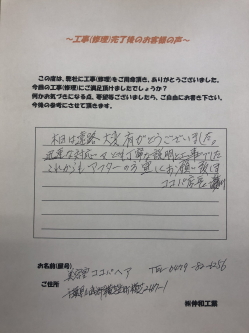 ～工事(修理)完了後のお客様の声～
この度は、弊社に工事(修理)をご用命頂き、ありがとうございました。
今回の工事(修理)にご満足頂けましたでしょうか？
何かお気づきになる点、希望等ございましたら、ご自由にお書き下さい。
今後の参考にさせて頂きます。
本日は遠路大変有がとうございました。
迅速な対応 とても丁寧な説明と工事でした
これからも アフターの方 宜しくお願い致します
お名前(屋号)
美容室ココパヘア TEL 0479-82-4256
ご住所
千葉県
㈱伸和工業